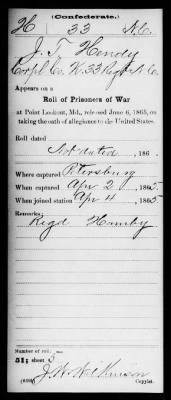 (Confederate.)
H 33 N.C.
J. T. Hendy
Corpl Co. H. 33 Regt N. C.
Appears on a
Roll of Prisoners of War
at Point Lookout, Md., released June 6, 1865, on
taking the oath of allegiance to the United States.
Roll dated
Not dated, 186 .
Where captured Petersburg
When captured Apr 2, 1865.
When joined station Apr 4, 1865
Remarks:
Regd Hamby
Number of roll:
51; sheet 5
J. W. Wilkinson
(639b) Copyist.